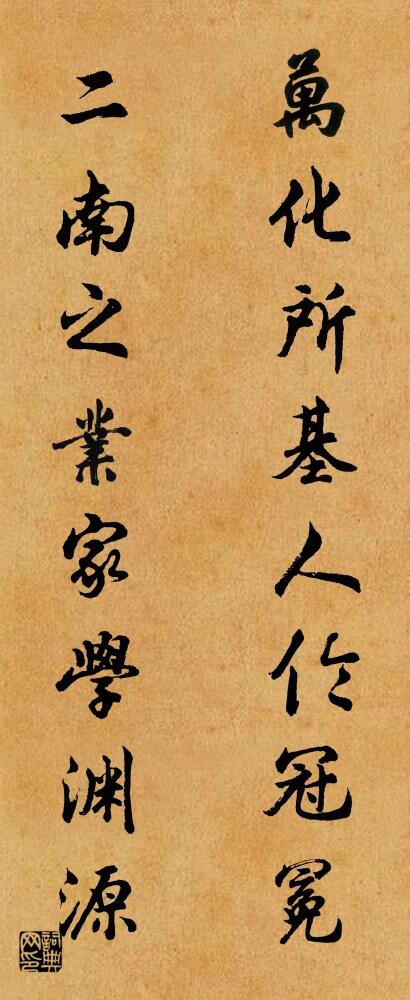 萬化所基人伦冠冕
二南之業家學渊源
詞典
网印